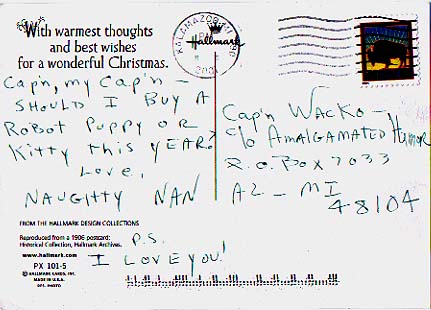 With warmest thoughts
and best wishes
for a wonderful Christmas.
Hallmark
KALAMAZOO
PM
2001
Cap'n, my Cap'n –
SHOULD I BUY A
ROBOT PUPPY OR
KITTY THIS YEAR?
LOVE,
NAUGITTY NAN
P.S.
I LOVE YOU!
Cap'n WACKO –
c/o AMALGAMATED HUMOR
P.O. BOX 7033
A2 – MI
48104
FROM THE HALLMARK DESIGN COLLECTIONS
Reproduced from a 1906 postcard:
Historical Collection, Hallmark Archives.
www.hallmark.com
PX 101-5
© HALLMARK CARDS, INC.
MADE IN U.S.A.